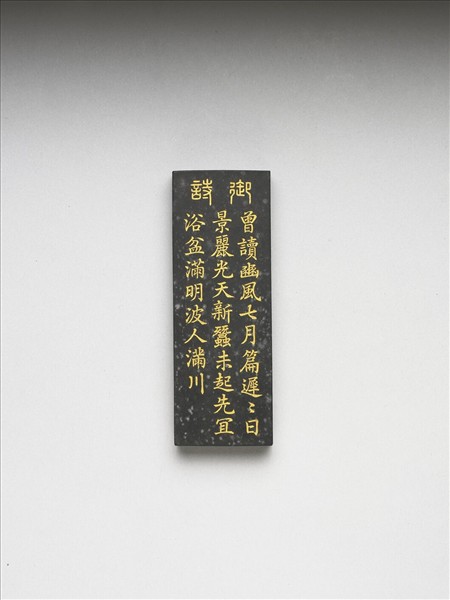 御詩
曾讀豳風七月篇遲〻日
景麗光天新蠶未起先冝
浴盆滿明波人滿川